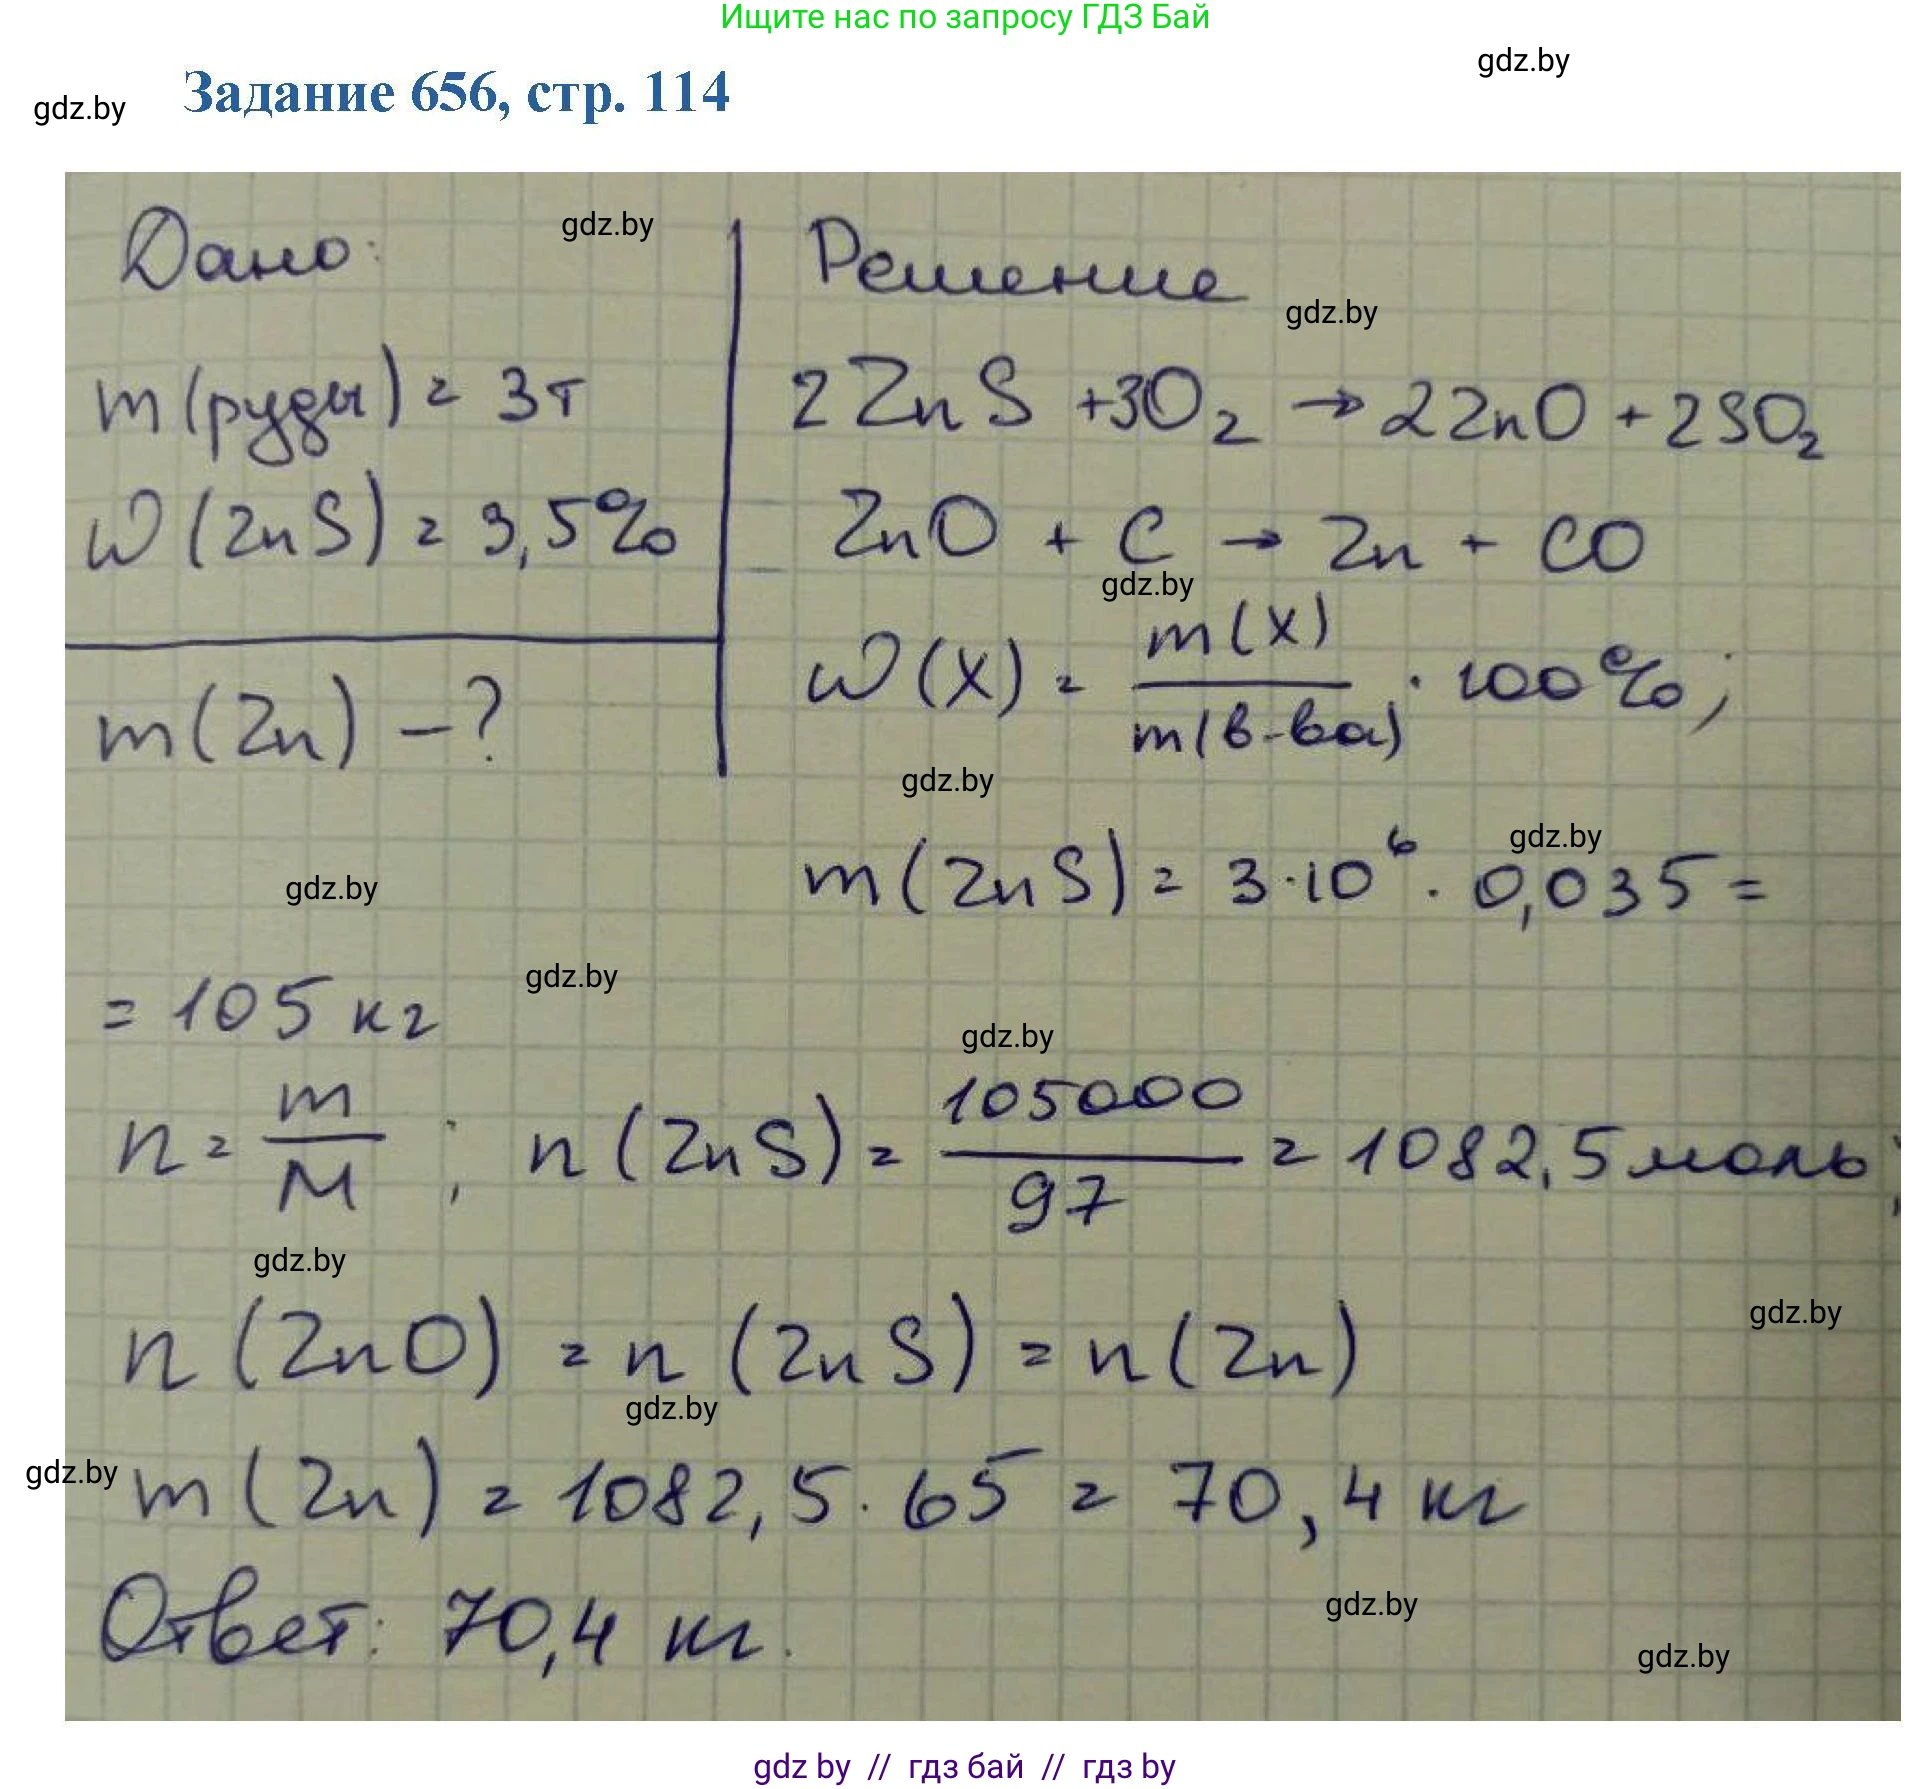 Ищите нас по запросу ГДЗ Бай
gdz.by
Задание 656, стр. 114
gdz.by
Дано:
gdz.by
Решение
gdz.by
m (руды) = 3т
2 ZnS + 3O₂ → 2ZnO + 2SO₂
W (ZnS) = 3,5%
ZnO + C → Zn + CO
gdz.by
m (Zn) - ?
W (X) = m(X) / m(в-ва) · 100%;
gdz.by
gdz.by
m (ZnS) = 3·10⁶ · 0,035 =
gdz.by
= 105 кг
gdz.by
gdz.by
n = m / M ; n (ZnS) = 105000 / 97 = 1082,5 моль;
gdz.by
gdz.by
n (ZnO) = n (ZnS) = n (Zn)
gdz.by
gdz.by
m (Zn) = 1082,5 · 65 = 70,4 кг
gdz.by
Ответ: 70,4 кг.
gdz.by
gdz by // гдз бай // гдз by